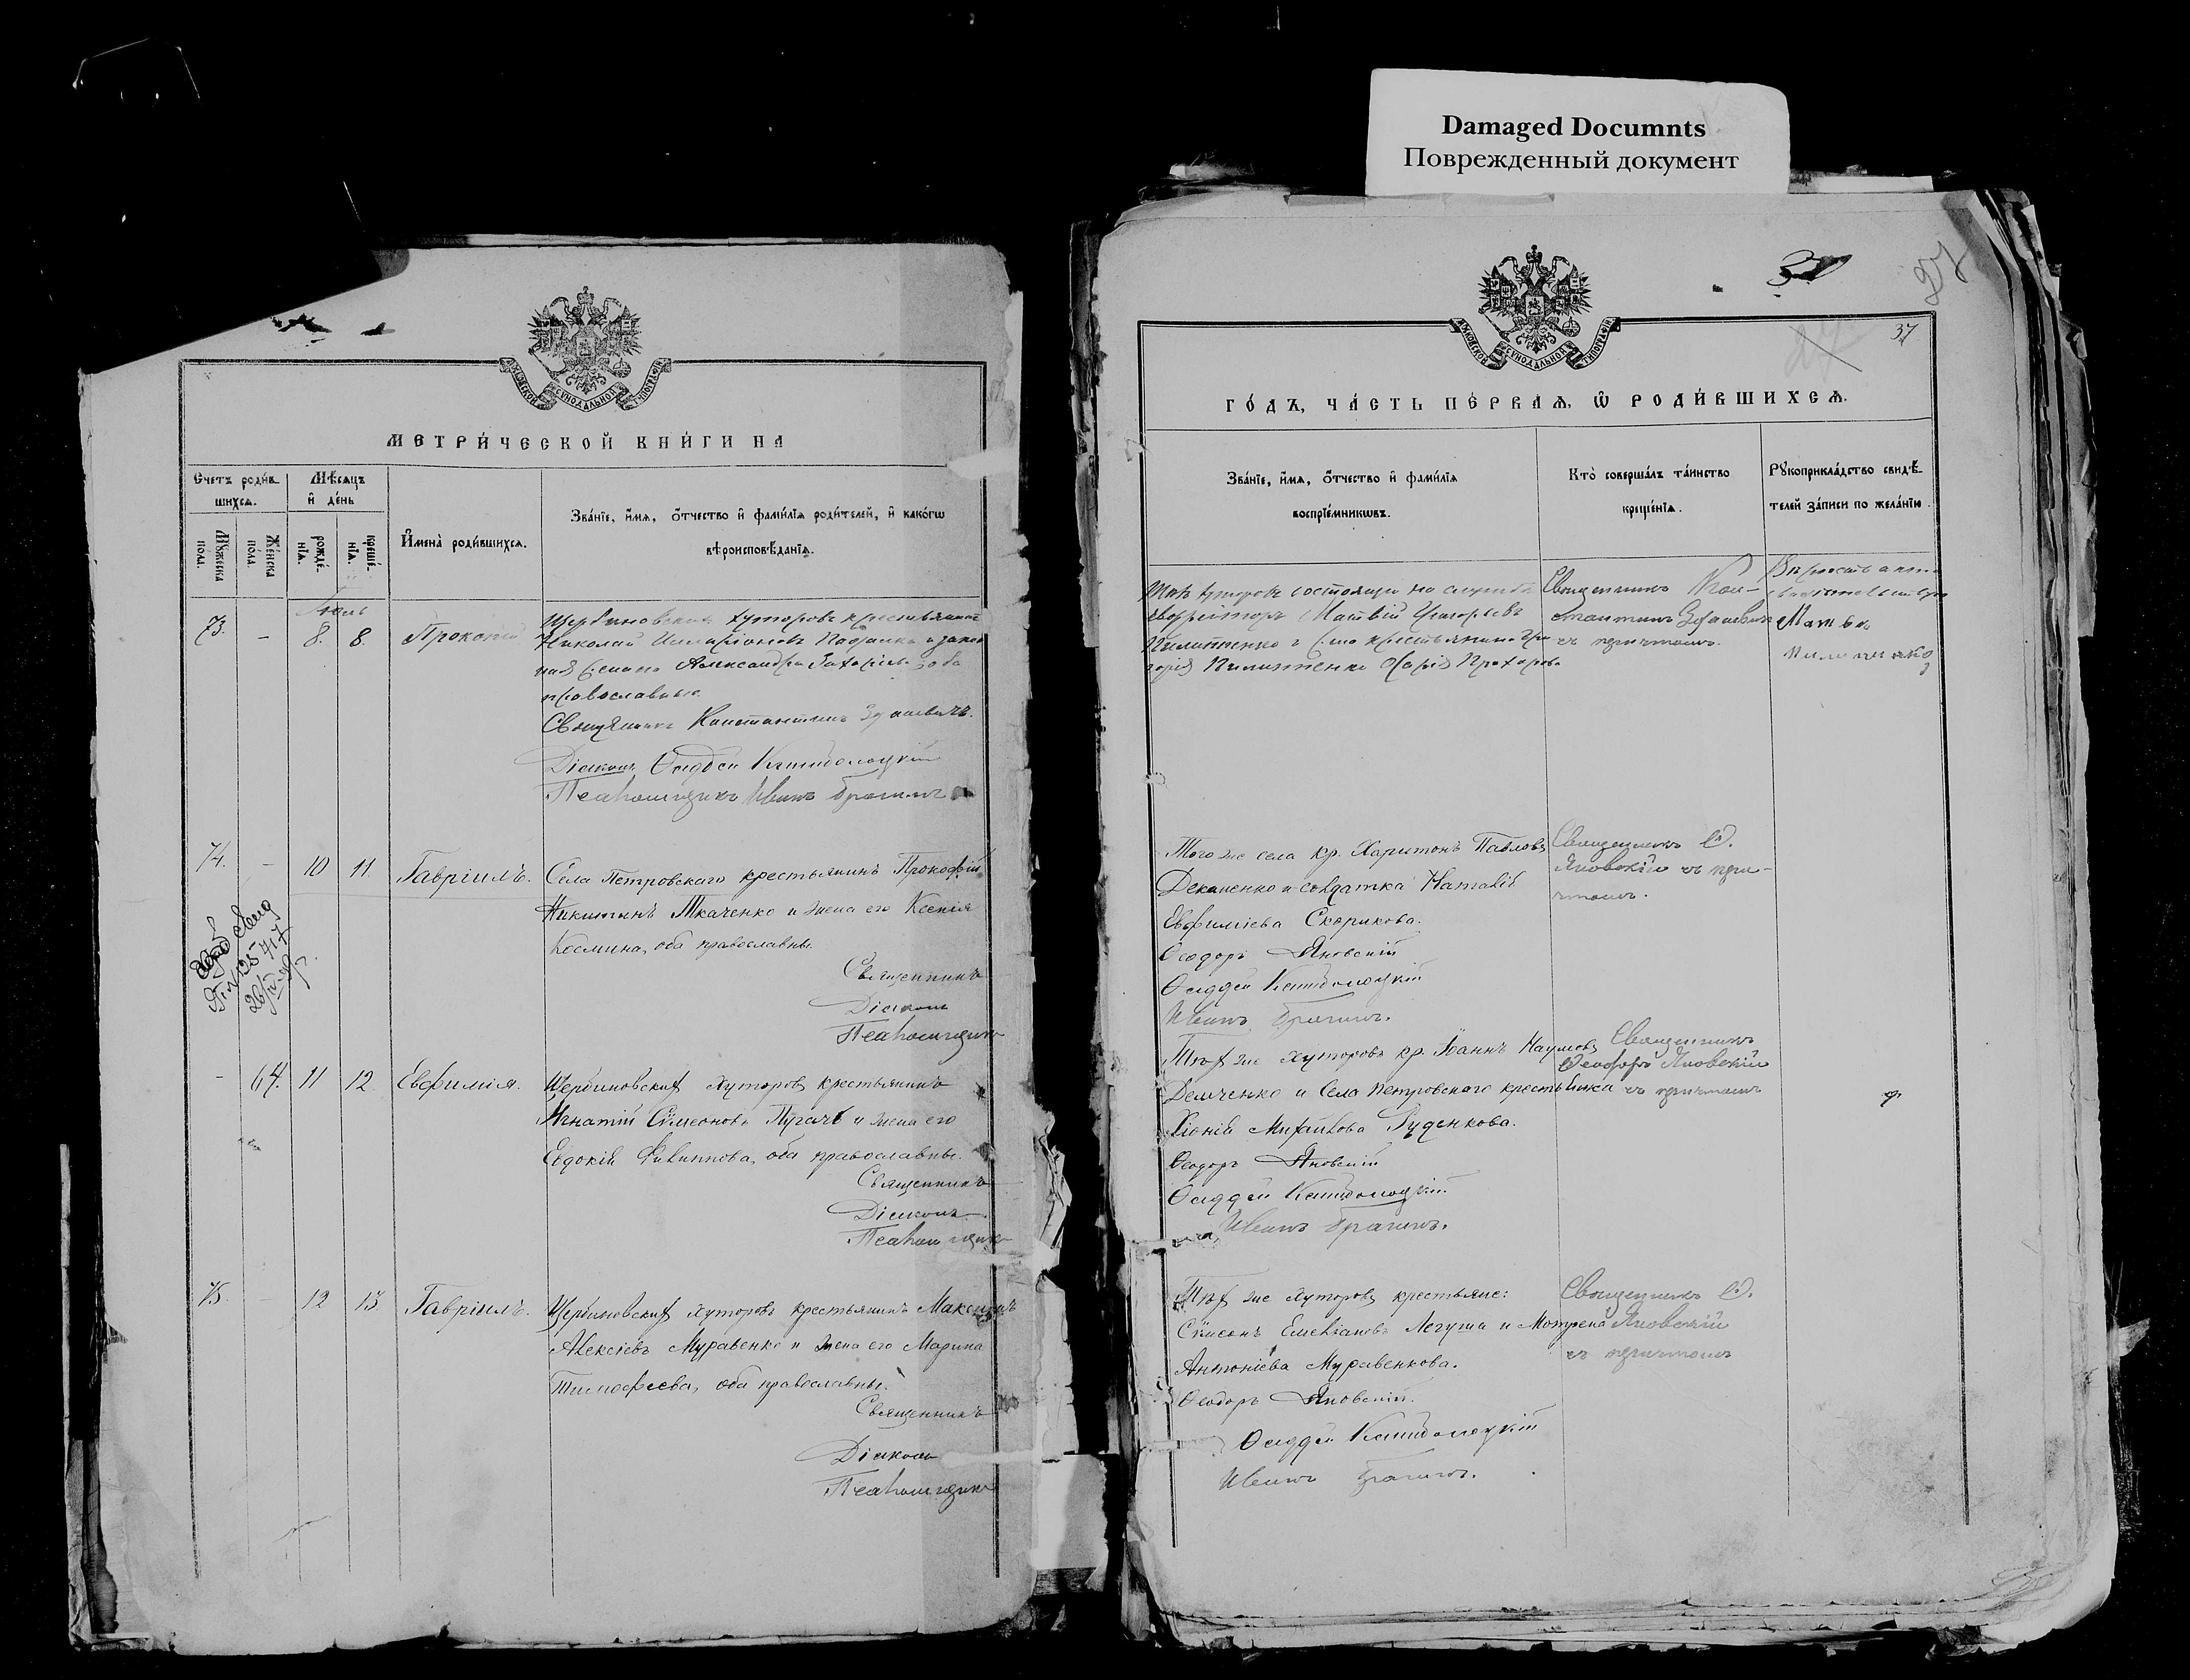 Damaged Documnts
Поврежденный документ
МОСКОВСКОЙ СУНОДАЛЬНОЙ ТИПОГРАФІИ
МЕТРИ́ЧЕСКОЙ КНИ́ГИ НА
Счетъ роди́вшихсѧ.
Мѣ́сѧцъ и҆ де́нь
Мꙋ́жеска пола.
Же́нска по́ла.
рожде́нїѧ.
креще́нїѧ.
И҆мена̀ роди́вшихсѧ.
Зва́нїе, и҆́мѧ, ѻ҆́тчество и҆ фами́лїѧ роди́телей, и҆ како́гѡ
вѣроисповѣ́данїѧ.
Іюль
73. - 8. 8. Прокопій
Щербиновскихъ хуторовъ крестьянинъ
Николай Илларіоновъ и закон
ная жена его Александра Захаріева оба
православные.
Священникъ Константинъ Зданевичъ.
Діаконъ Ѳаддей
Псаломщикъ Иванъ Брагинъ
74. - 10 11. Гавріилъ.
Села Петровскаго крестьянинъ Прокофій
Никитинъ Ткаченко и жена его Ксенія
Космина, оба православны.
Священникъ
Діаконъ
Псаломщикъ
- 64. 11 12. Евфимія.
Щербиновскихъ Хуторовъ крестьянинъ
Игнатій Симеоновъ Пугачъ и жена его
Евдокія Филиппова, оба православны.
Священникъ
Діаконъ
Псаломщикъ
75. - 12 13. Гавріилъ.
Щербиновскихъ Хуторовъ крестьянинъ Максимъ
Алексіевъ Муравенко и жена его Марина
Тимофеева, оба православны.
Священникъ
Діаконъ
Псаломщикъ
37
27
МОСКОВСКОЙ СУНОДАЛЬНОЙ ТИПОГРАФІИ
ГО́ДЪ, ЧА́СТЬ ПЕ́РВАѦ, Ѽ РОДИ́ВШИХСѦ.
Зва́нїе, и҆́мѧ, ѻ҆́тчество и҆ фами́лїѧ
воспрїе́мникѡвъ.
Кто̀ соверша́лъ та́инство
креще́нїѧ.
Рꙋкоприкла́дство свидѣ́
телей за́писи по жела́нїю.
Тѣхъ хуторовъ состоящій на службѣ
ефрейторъ Матвій Григорьевъ
Пилипенко и
горія Пилипенко Марія Прохорова
Священникъ Кон-
стантинъ Зданевичъ
съ причтомъ.
Матвѣй
Пилипенко
Того же села кр. Харитонъ Павловъ
Декаленко и солдатка Наталія
Евфиміева Скорикова.
Ѳеодоръ Яновскій
Ѳаддей
Иванъ Брагинъ.
Священникъ Ѳ.
Яновскій съ при-
чтомъ.
Тѣхъ же хуторовъ кр. Іоаннъ Наумовъ
Демченко и Села Петровскаго крестьянка
Хіонія Михайлова Руденкова.
Ѳеодоръ Яновскій
Ѳаддей
Иванъ Брагинъ.
Священникъ
Ѳеодоръ Яновскій
съ причтомъ
Тѣхъ же Хуторовъ крестьяне:
Симеонъ Емельяновъ Легуша и Матрена
Антоніева Муравенкова.
Ѳеодоръ Яновскій.
Ѳаддей
Иванъ Брагинъ.
Священникъ Ѳ.
Яновскій
съ причтомъ